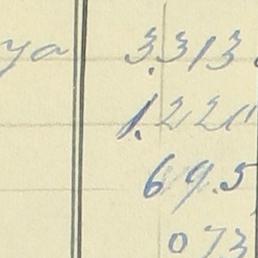 ya 3.313
1.221
69.5
073